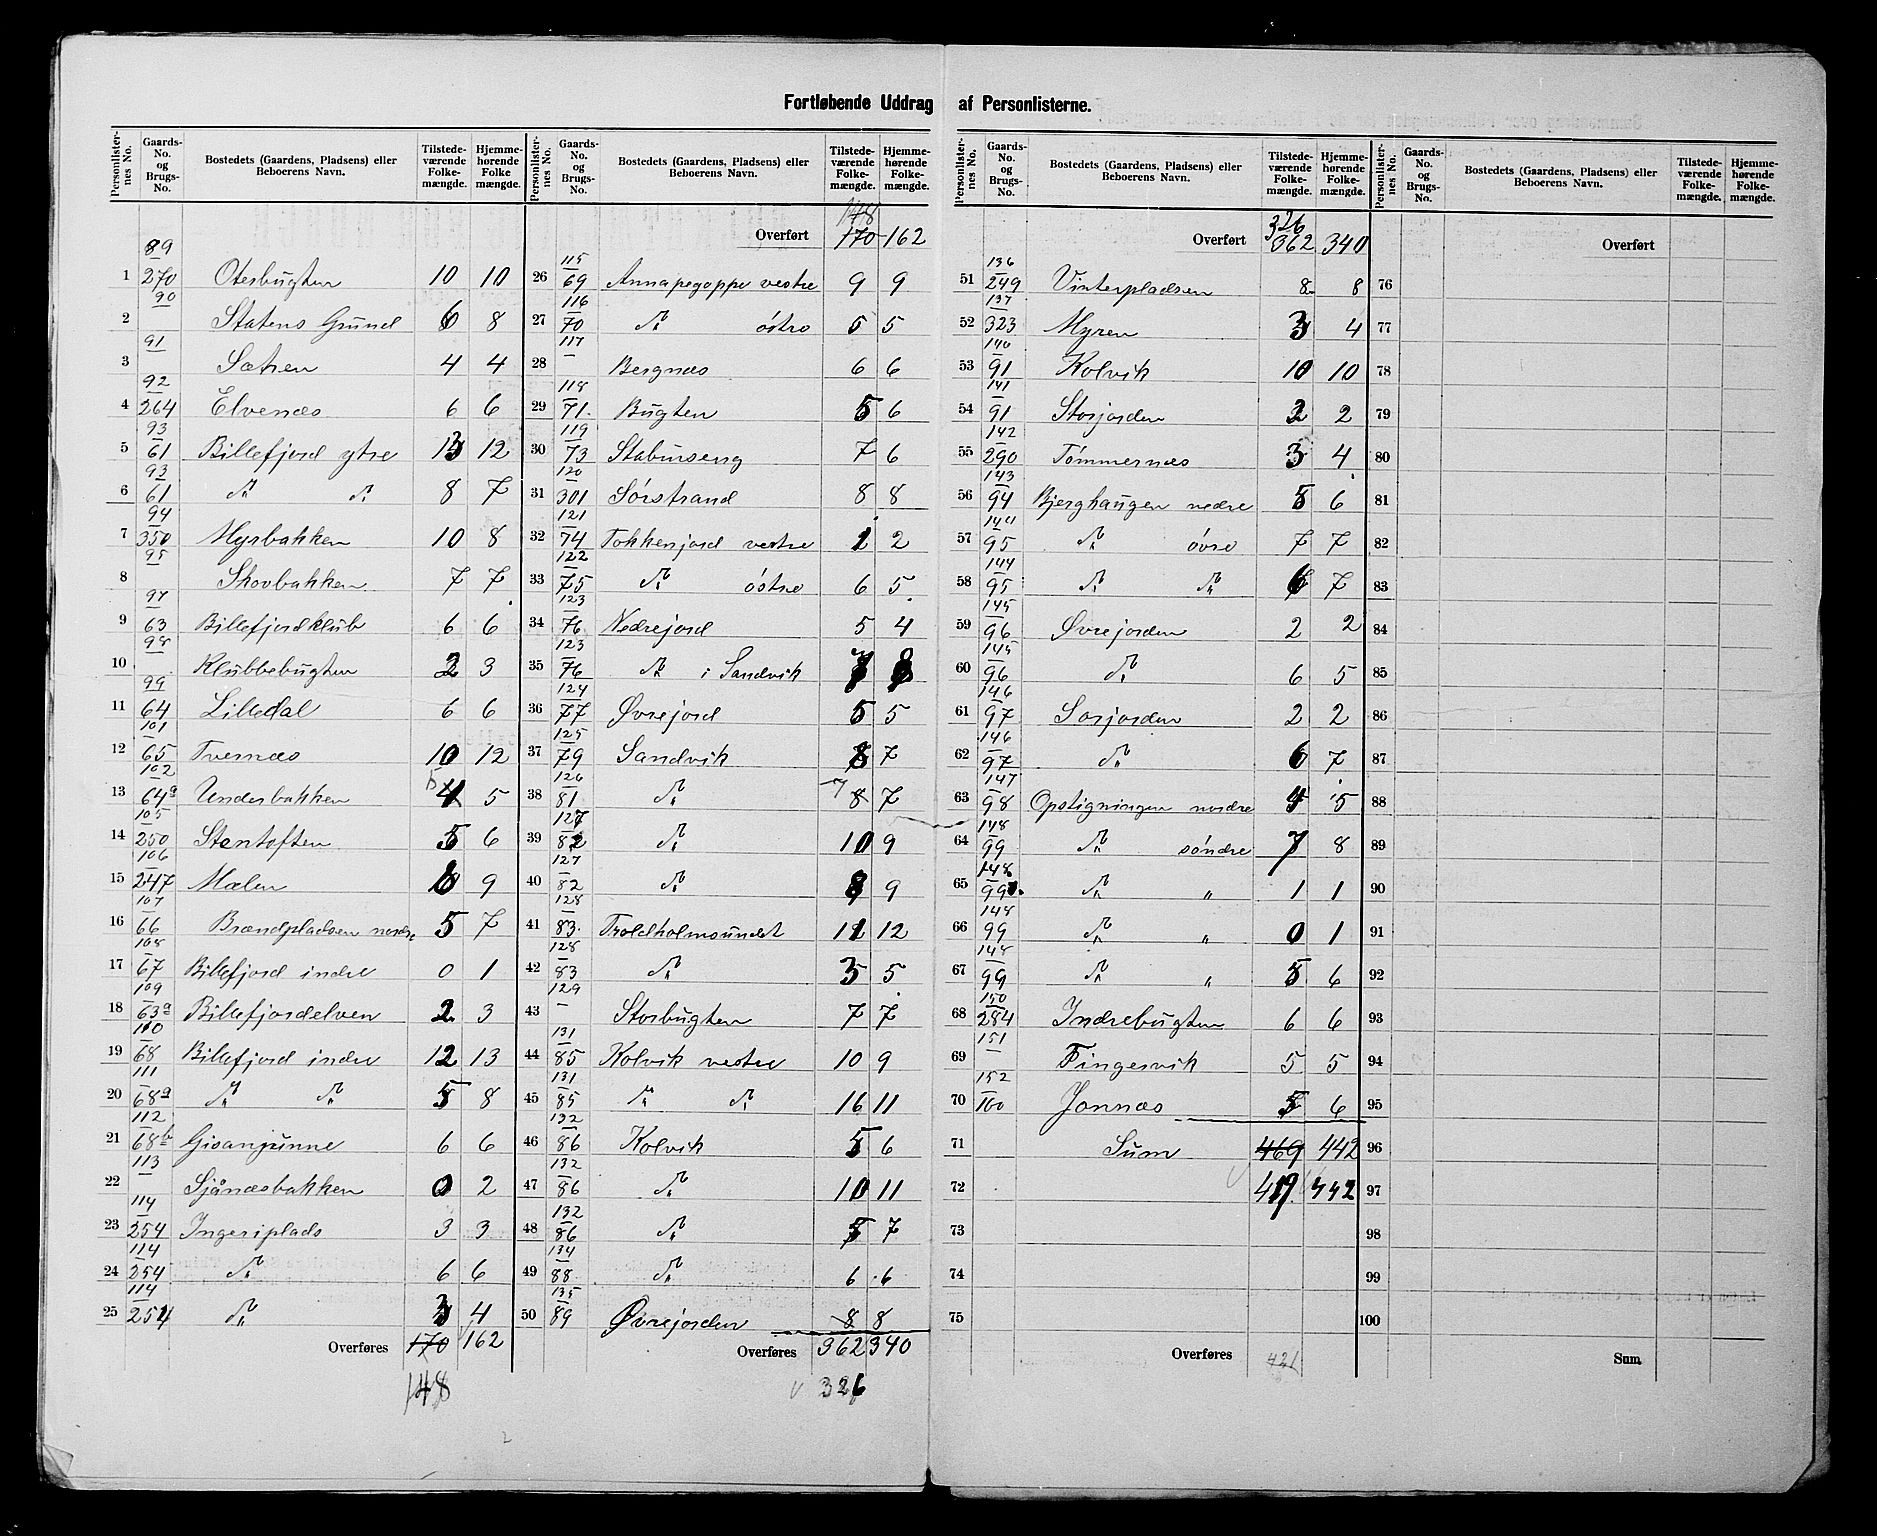 Fortløbende Uddrag af Personlisterne.
Personlister-nes No. Gaards-No. og Brugs-No. Bostedets (Gaardens, Pladsens) eller Beboerens Navn. Tilstede-værende Folke-mængde. Hjemme-hørende Folke mængde.
1 89/270 Otesbugten 10 10
2 90 Statens Grund 6 8
3 91 Sætren 4 4
4 92/264 Elvenæs 6 6
5 93/61 Billefjord ytre 13 12
6 93/61 do do 8 7
7 94/350 Myrbakken 10 8
8 95 Skovbakken 7 7
9 97/63 Billefjordklub 6 6
10 98 Klubbebugten 2 3
11 99/64 Lilledal 6 6
12 101/65 Tvernæs 10 12
13 102/64a Underbakken 5 5
14 105/250 Stentoften 5 6
15 106/247 Mælen 8 9
16 107/66 Brændpladsen nordre 5 7
17 108/67 Billefjord indre 0 1
18 109/63a Billefjordelven 2 3
19 110/68 Billefjord indre 12 13
20 111/68a do do 5 8
21 112/68b Gisanjunne 6 6
22 113 Sjånæsbakken 0 2
23 114/254 Ingeriplads 3 3
24 114/254 do 6 6
25 114/254 do 3 4
Overføres 170 162
148
Personlister-nes No. Gaards-No. og Brugs-No. Bostedets (Gaardens, Pladsens) eller Beboerens Navn. Tilstede-værende Folke-mængde. Hjemme-hørende Folke-mængde.
148
Overført 170 162
26 115/69 Annapegoppe vestre 9 9
27 116/70 do østre 5 5
28 117/– Bergnæs 6 6
29 118/71 Bugten 5 6
30 119/73 Staburseng 7 6
31 120/301 Sørstrand 8 8
32 121/74 Tokkenjord vestre 1 2
33 122/75 do østre 6 5
34 123/76 Nedrejord 5 4
35 123/76 do i Sandvik 7 8
36 124/77 Øvrejord 5 5
37 125/79 Sandvik 8 7
38 126/81 do 7 8 7
39 127/82 do 10 9
40 127/82 do 8 9
41 128/83 Troldholmsundet 11 12
42 128/83 do 3 5
43 129/– Storbugten 7 7
44 131/85 Kolvik vestre 10 9
45 131/85 do do 16 11
46 132/86 Kolvik 5 6
47 132/86 do 10 11
48 132/86 do 5 7
49 134/88 do 6 6
50 135/89 Øvrejorden 8 8
Overføres 362 340
326
Personlister-nes No. Gaards-No. og Brugs-No. Bostedets (Gaardens, Pladsens) eller Beboerens Navn. Tilstede-værende Folke-mængde. Hjemme-hørende Folke-mængde.
326
Overført 362 340
51 136/249 Vinterpladsen 8 8
52 137/323 Myren 3 4
53 140/91 Kolvik 10 10
54 141/91 Storjorden 2 2
55 142/290 Tømmernæs 3 4
56 143/94 Bjerghaugen nedre 5 6
57 144/95 do øvre 7 7
58 144/95 do do 6 7
59 145/96 Øvrejorden 2 2
60 145/96 do 6 5
61 146/97 Sorjorden 2 2
62 146/97 do 6 7
63 147/98 Opstigningen nordre 4 5
64 148/99 do søndre 7 8
65 148/99 do " 1 1
66 148/99 do " 0 1
67 148/99 do " 5 6
68 150/284 Indrebugten 6 6
69 151/– Fingervik 5 5
70 152/100 Jonnæs 5 6
71 Sum 469 442
72 419 442
73
74
75
Overføres 421
Personlister-nes No. Gaards-No. og Brugs-No. Bostedets (Gaardens, Pladsens) eller Beboerens Navn. Tilstede-værende Folke-mængde. Hjemme-hørende Folke-mængde.
Overført
76
77
78
79
80
81
82
83
84
85
86
87
88
89
90
91
92
93
94
95
96
97
98
99
100
Sum